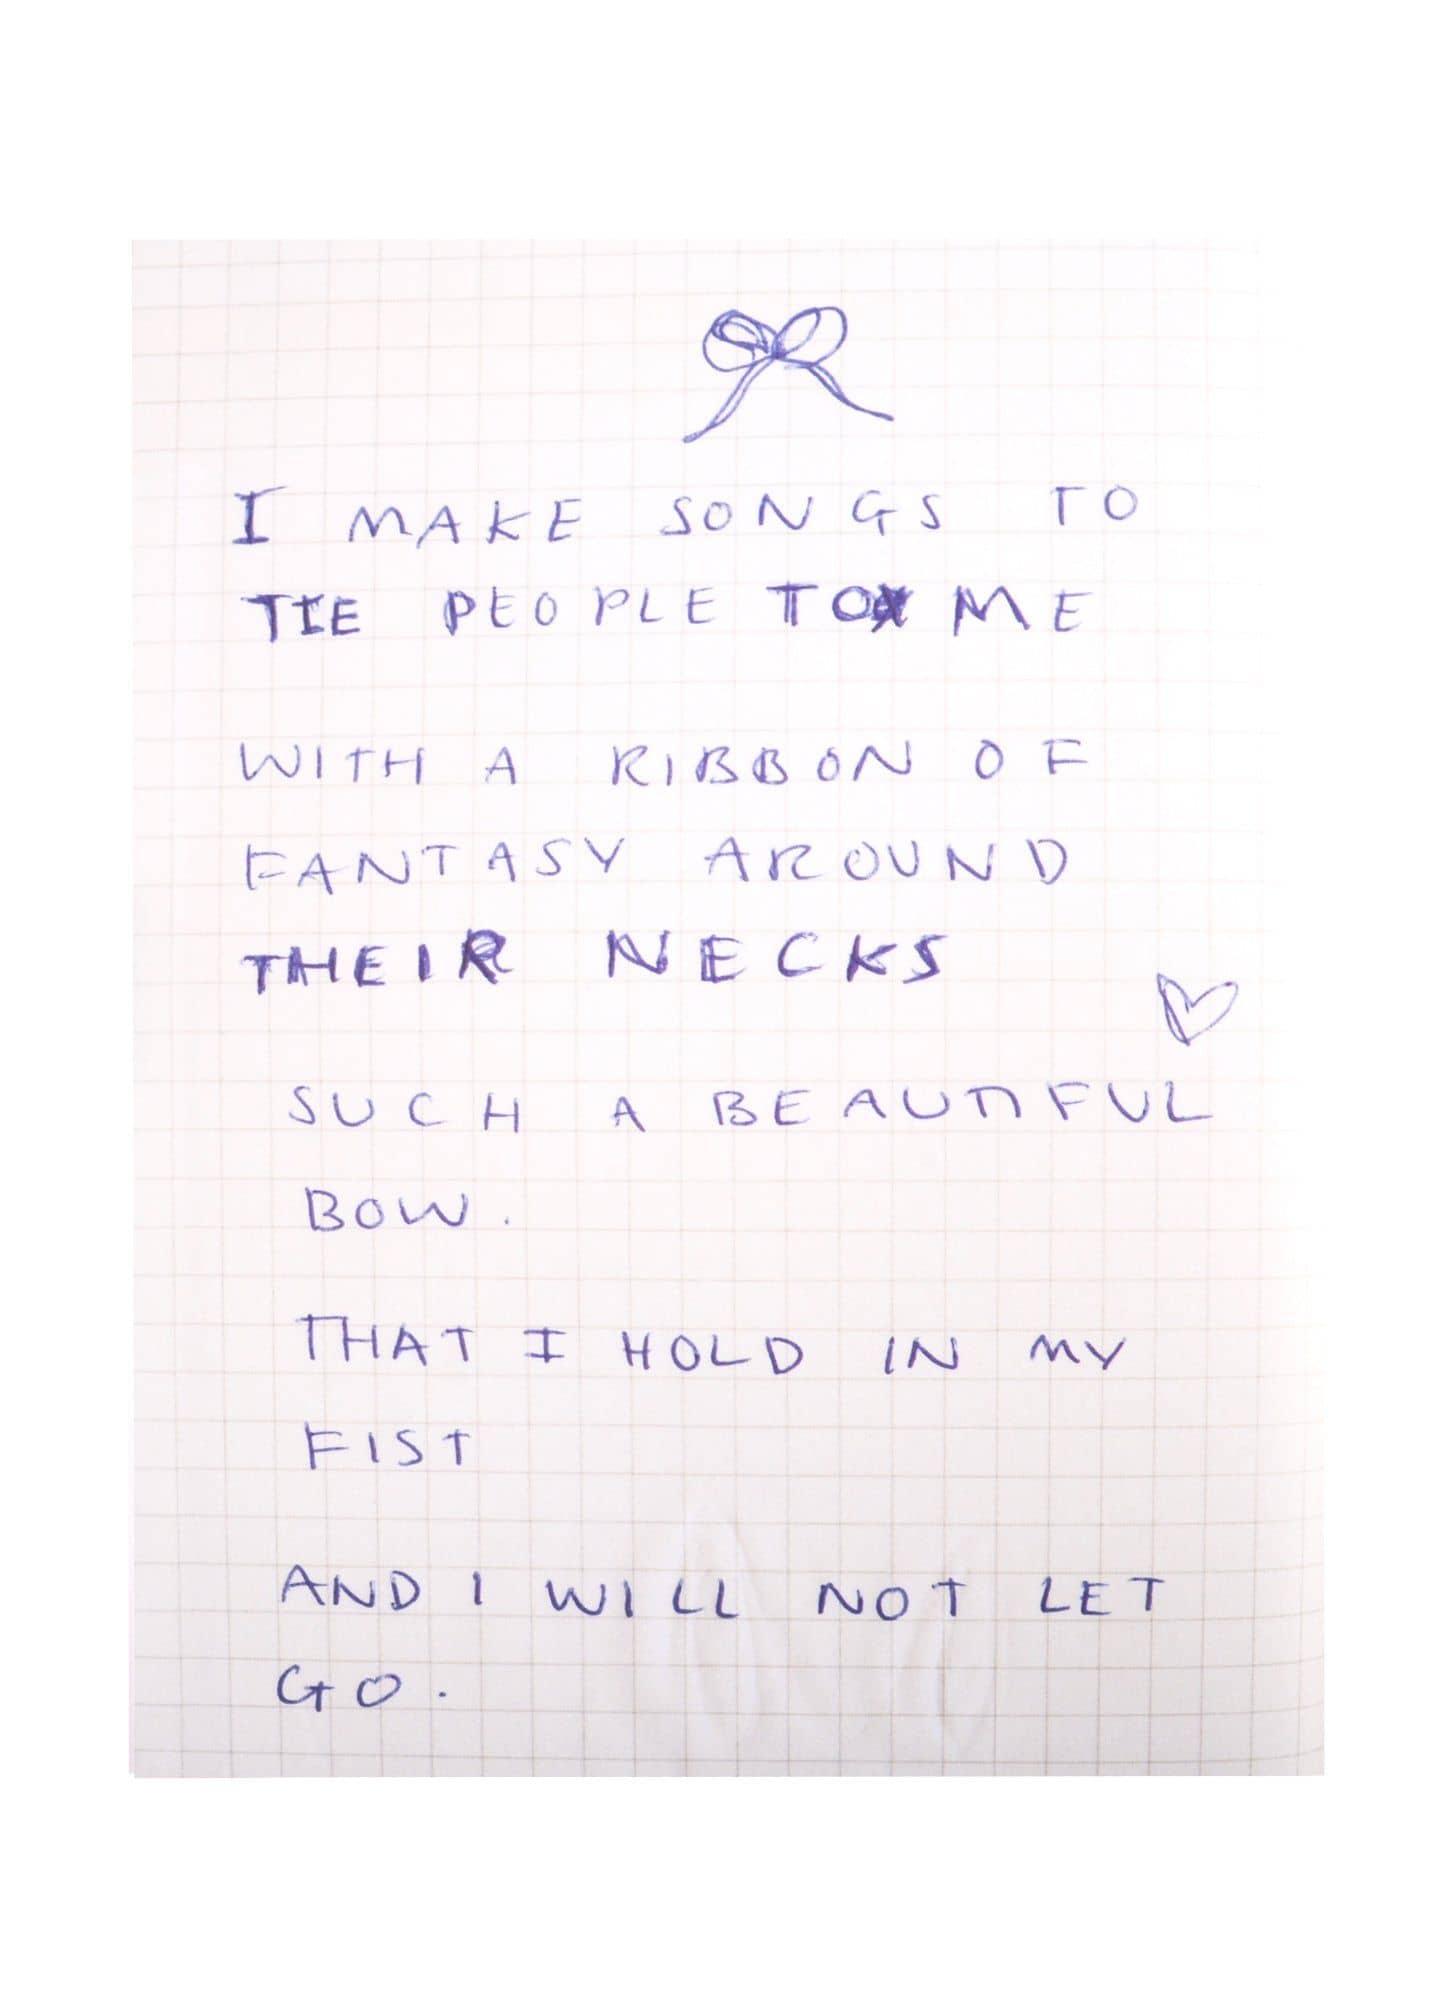 I MAKE SONGS TO
TIE PEOPLE TO ME
WITH A RIBBON OF
FANTASY AROUND
THEIR NECKS
SUCH A BEAUTIFUL
BOW.
THAT I HOLD IN MY
FIST
AND I WILL NOT LET
GO.